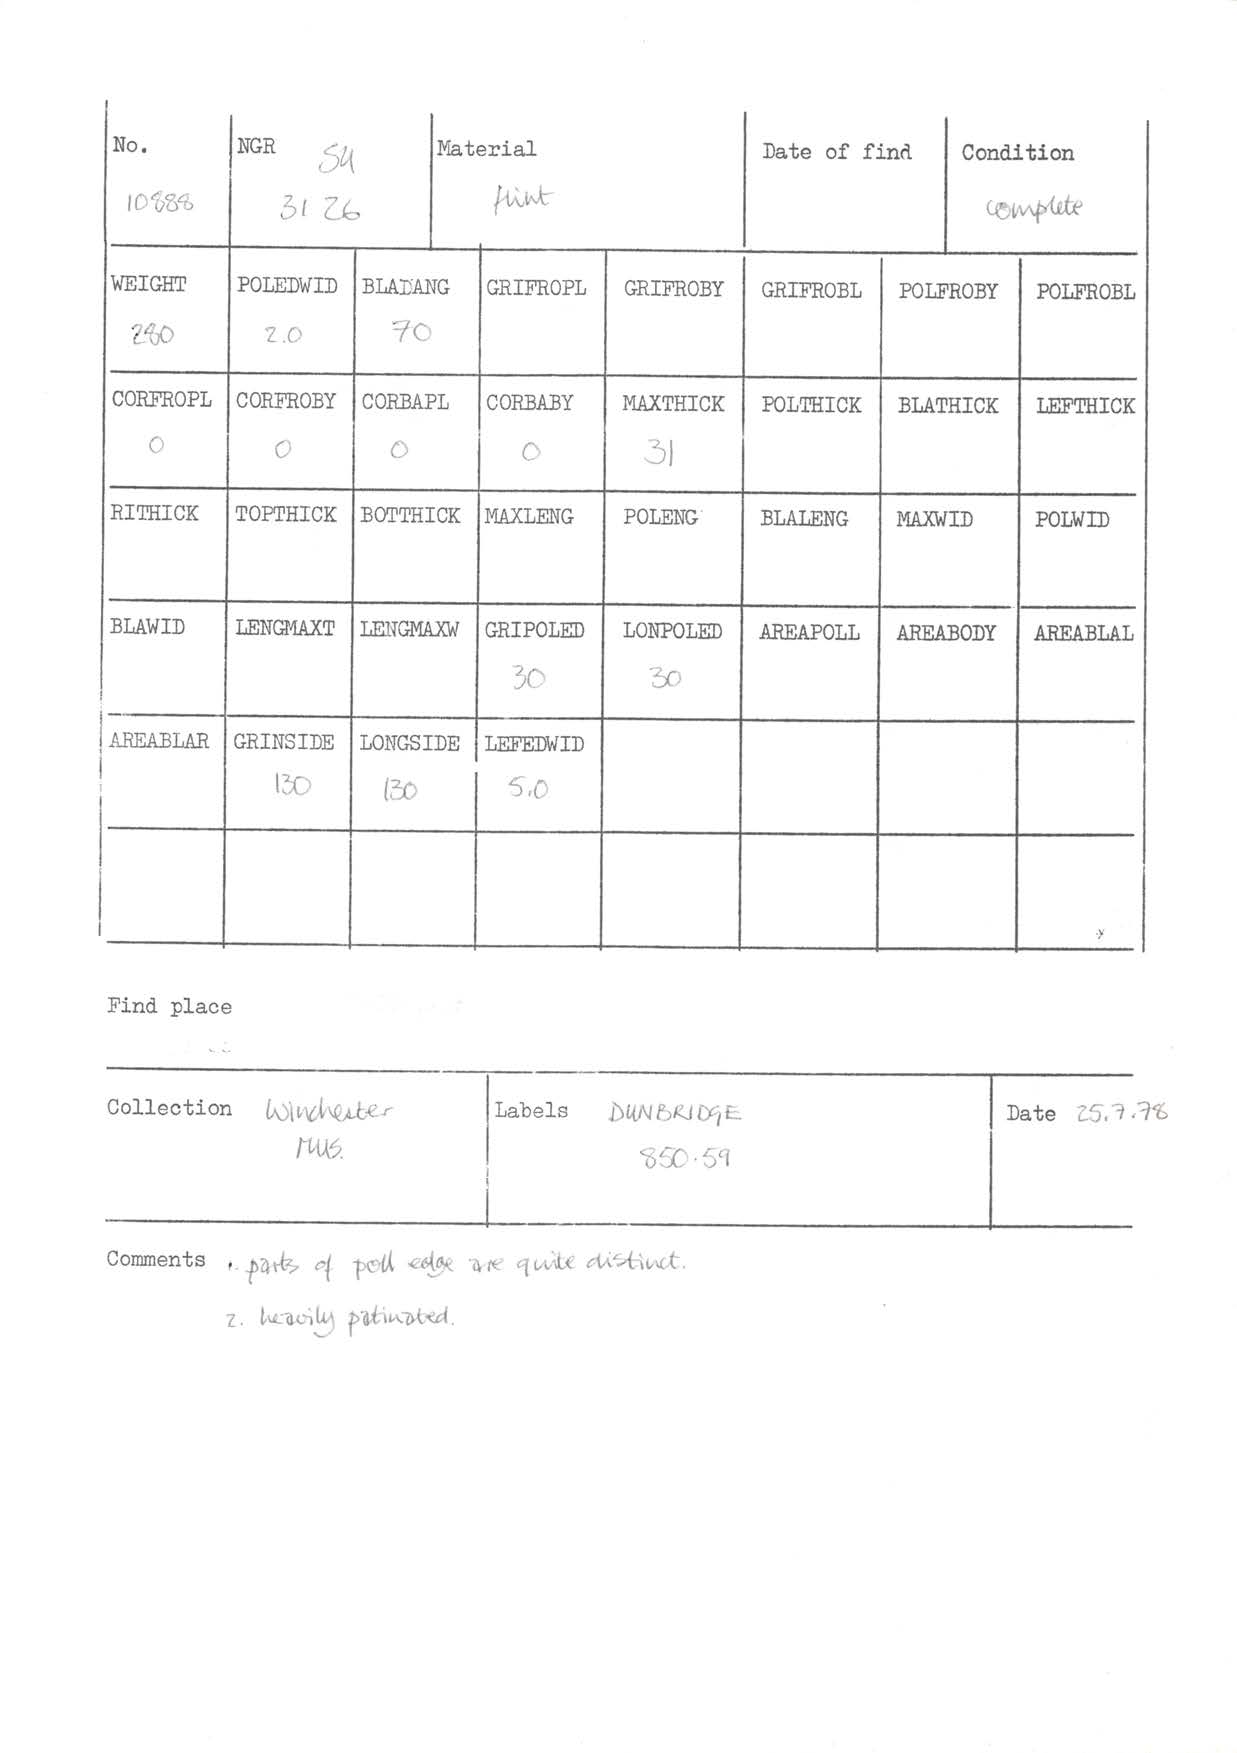 No. NGR SU Material Date of find Condition
10888 31 26 flint complete
WEIGHT POLEDWID BLADANG GRIFROPL GRIFROBY GRIFROBL POLFROBY POLFROBL
280 2.0 70
CORFROPL CORFROBY CORBAPL CORBABY MAXTHICK POLTHICK BLATHICK LEFTHICK
0 0 0 0 31
RITHICK TOPTHICK BOTTHICK MAXLENG POLENG BLALENG MAXWID POLWID
BLAWID LENGMAXT LENGMAXW GRIPOLED LONPOLED AREAPOLL AREABODY AREABLAL
30 30
AREABLAR GRINSIDE LONGSIDE LEFEDWID
130 130 5.0
Find place
Collection Winchester Labels DUNBRIDGE Date 25.7.78
MUS. 850.59
Comments 1. parts of poll edge are quite distinct.
2. heavily patinated.